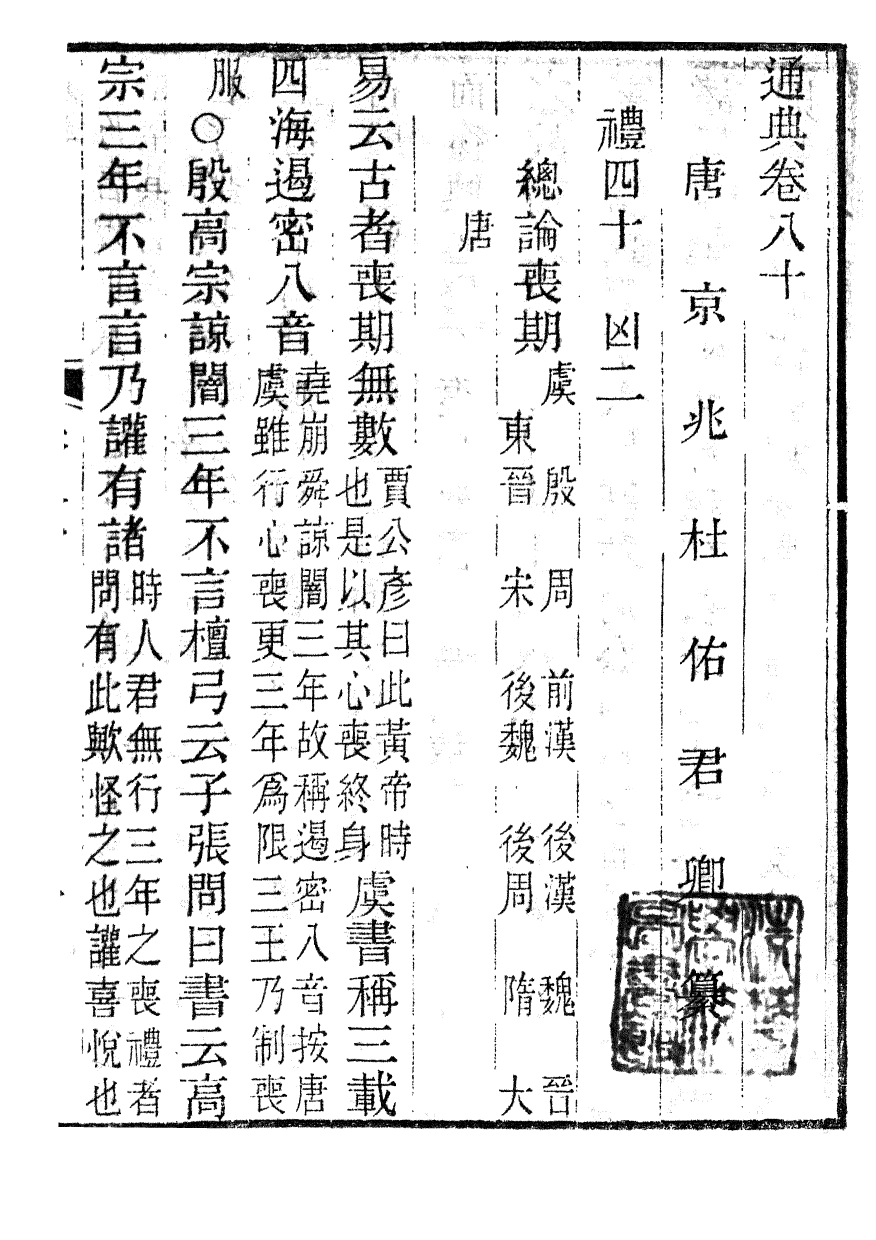 通典卷八十
唐京兆杜佑君卿纂
禮四十　凶二
總論喪期　虞　殷　周　前漢　後漢　魏　晉
東晉　宋　後魏　後周　隋　大
唐
易云古者喪期無數賈公彥曰此黃帝時
也是以其心喪終身虞書稱三載
四海遏密八音堯崩舜諒闇三年故稱遏密八音按唐
虞雖行心喪更三年爲限三王乃制喪
服○殷高宗諒闇三年不言檀弓云子張問曰書云高
宗三年不言言乃讙有諸時人君無行三年之喪禮者
問有此歟怪之也讙喜悅也